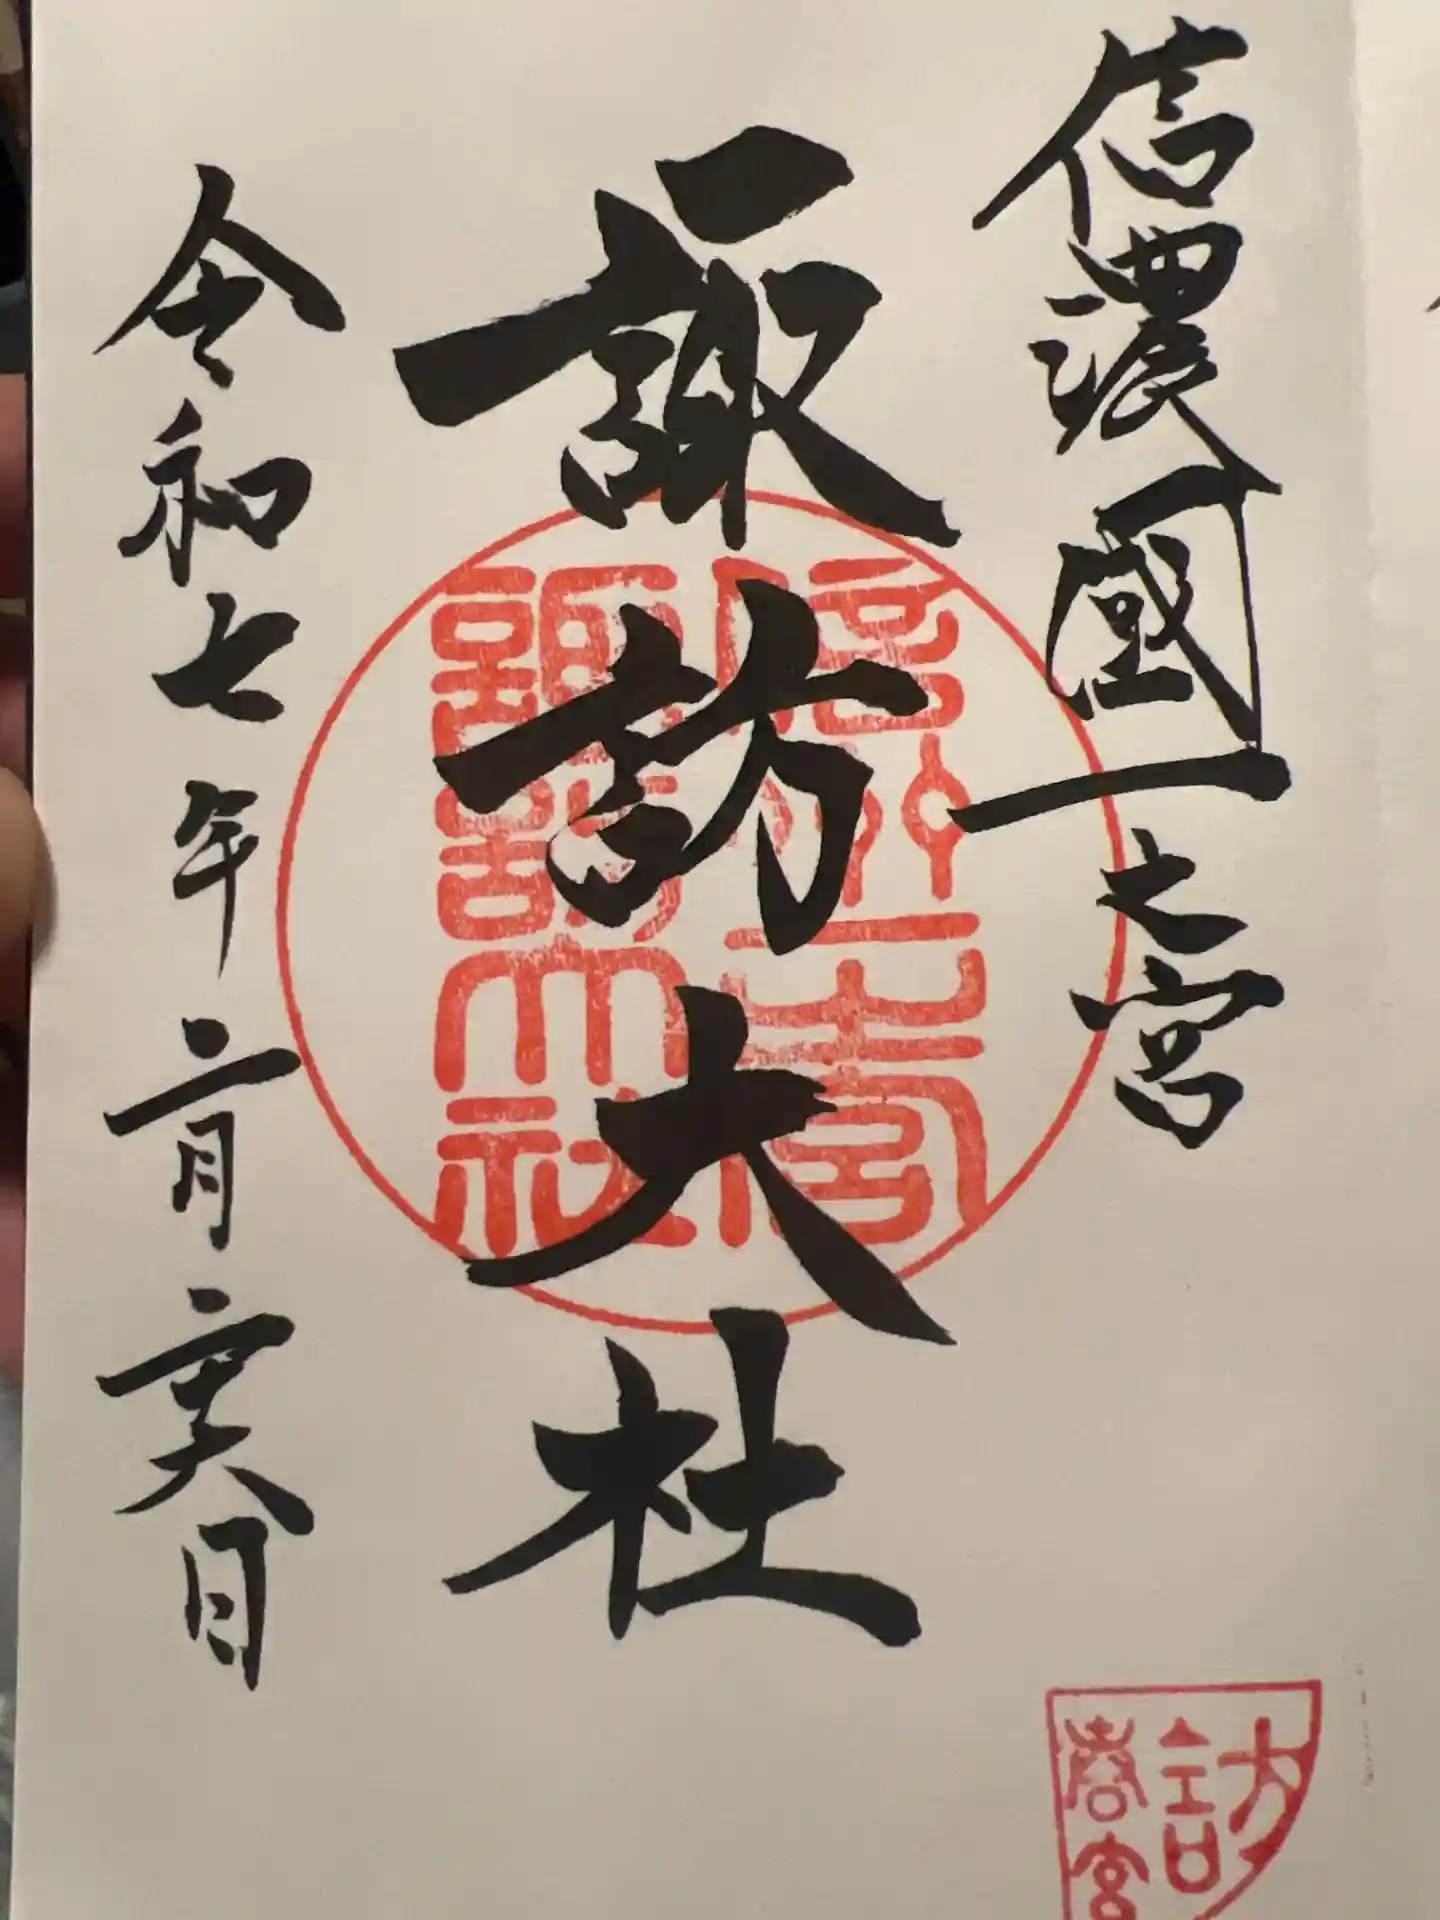 信濃國一之宮
諏訪大社
令和七年二月二十六日
信州一之宮
諏訪大社
訪
春宮